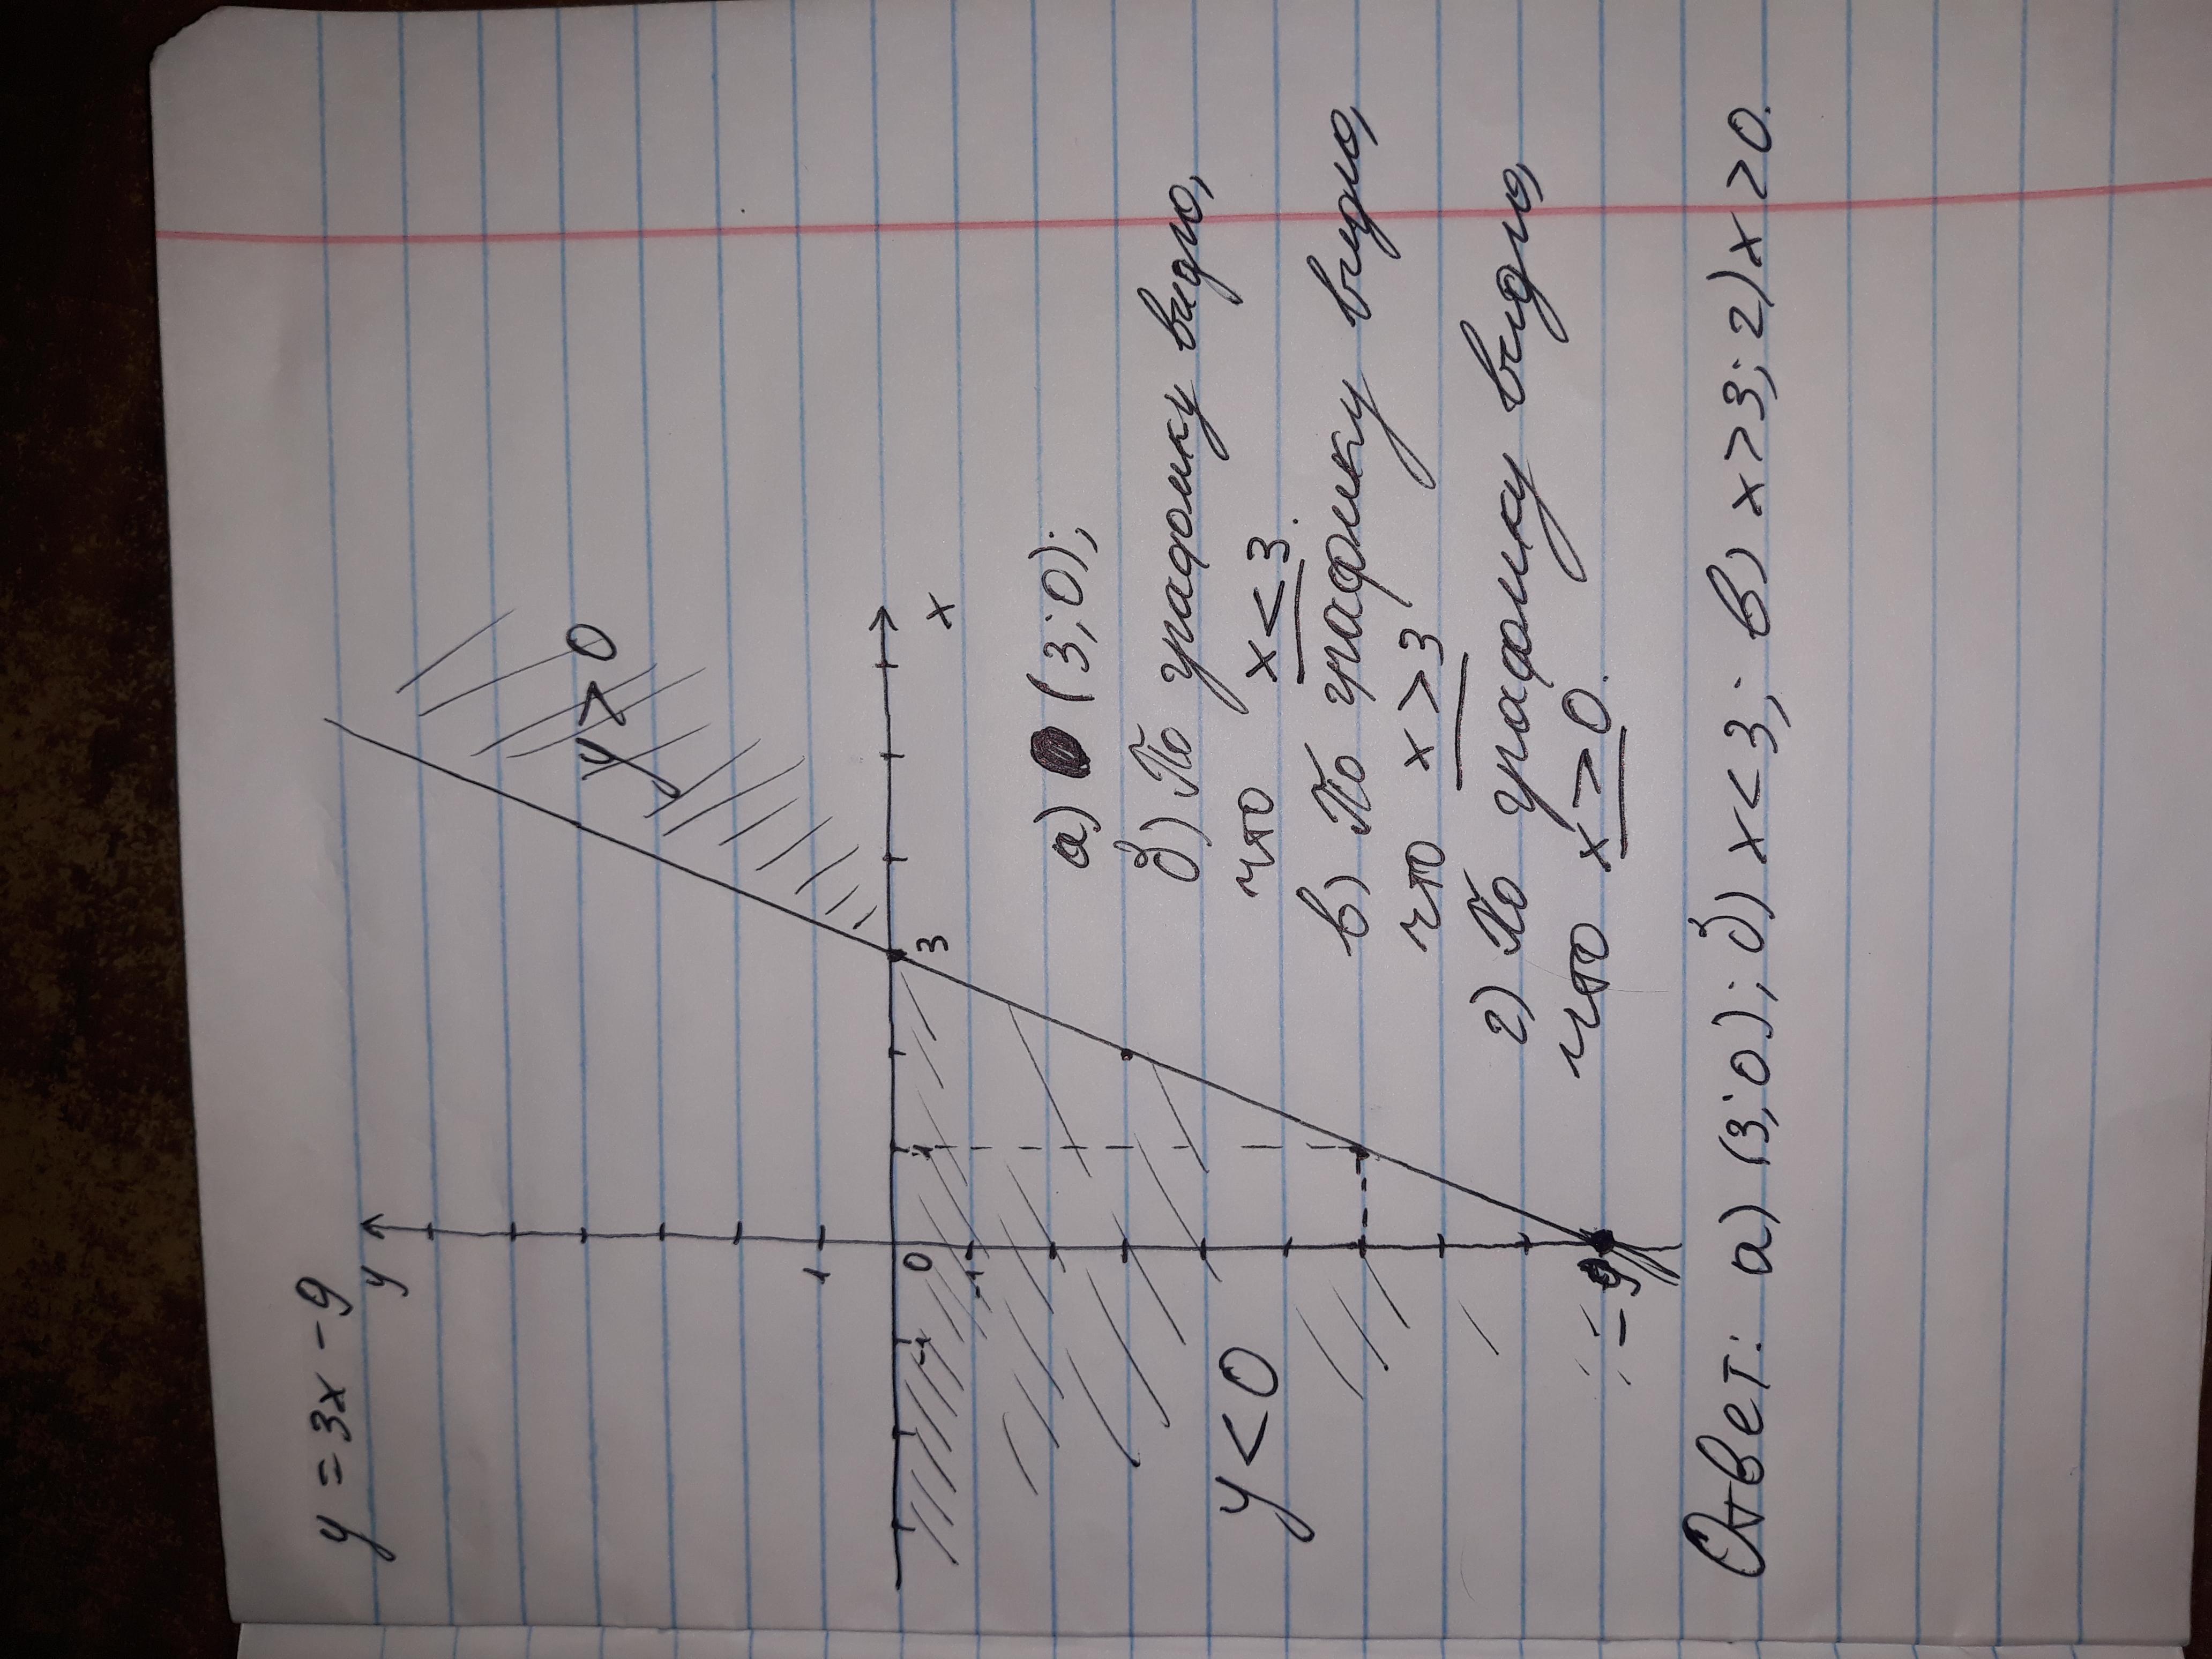 y = 3x - 9
y
y > 0
1
0
-1
1
3
x
-1
y < 0
-9
а) (3; 0);
б) По графику видно,
что x < 3.
в) По графику видно,
что x > 3
г) По графику видно,
что x > 0.
Ответ: а) (3; 0); б) x < 3; в) x > 3; г) x > 0.